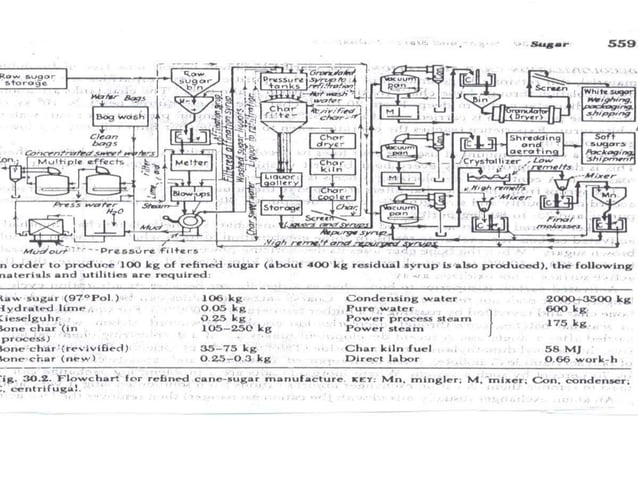 Sugar 559
Raw sugar storage
Raw sugar bin
Water Bags
Bag wash
Clean bags
Concentrated sweet waters
Multiple effects
Melter
Blow-ups
Steam
Press water
H₂O
Mud
Mud out
Pressure filters
Pressure tanks
Granulated syrup to refiltration
Hot wash water
Revivified char
Char filter
Char dryer
Char kiln
Char cooler
Liquor gallery
Storage
Screen
Char
Liquors and syrups
Repurge syrup
High remelt and repurged syrups
Vacuum pan
M
C
Bin
Granulator (Dryer)
Screen
White sugar Weighing, packaging, shipping
Vacuum pan
M
C
Shredding and aerating
Soft sugars Packaging, shipment
Crystallizer
Low remelts
Mixer
High remelts
Mixer
Mn
Vacuum pan
C
C
C
Final molasses
In order to produce 100 kg of refined sugar (about 400 kg residual syrup is also produced), the following
materials and utilities are required:
Raw sugar (97° Pol.) 106 kg Condensing water 2000–3500 kg
Hydrated lime 0.05 kg Pure water 600 kg
Kieselguhr 0.25 kg Power process steam
Bone char (in process) 105–250 kg Power steam 175 kg
Bone char (revivified) 35–75 kg Char kiln fuel 58 MJ
Bone char (new) 0.25–0.3 kg Direct labor 0.66 work-h
Fig. 30.2. Flowchart for refined cane-sugar manufacture. KEY: Mn, mingler; M, mixer; Con, condenser;
C, centrifugal.